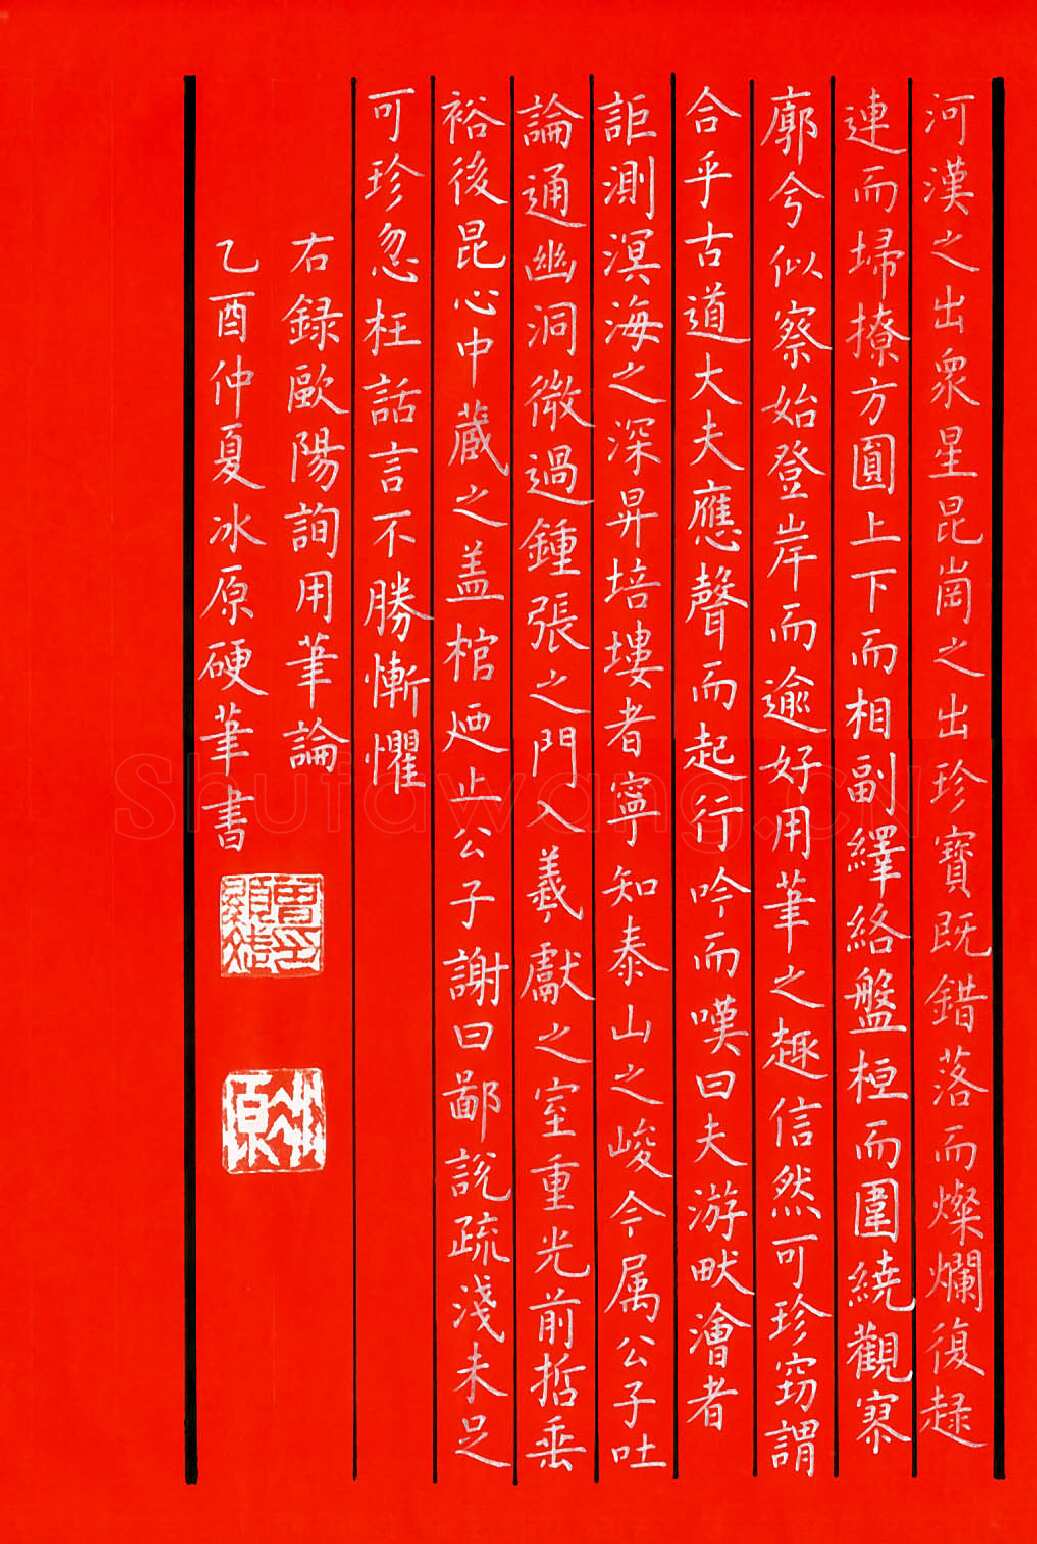 河漢之出衆星昆崗之出珍寶既錯落而燦爛復趢
連而埽撩方圓上下而相副繹絡盤桓而圍繞觀寥
廓兮似察始登岸而逾好用筆之趣信然可珍窈謂
合乎古道大夫應聲而起行吟而嘆曰夫游畎澮者
詎測溟海之深昇培塿者寧知泰山之峻今属公子吐
論通幽洞微過鍾張之門入羲獻之室重光前哲垂
裕後昆心中蔵之盖棺廼止公子謝曰鄙説疏淺未足
可珍忽枉話言不勝慚懼
右録歐陽詢用筆論
乙酉仲夏冰原硬筆書
冰原
Shufawang.CN